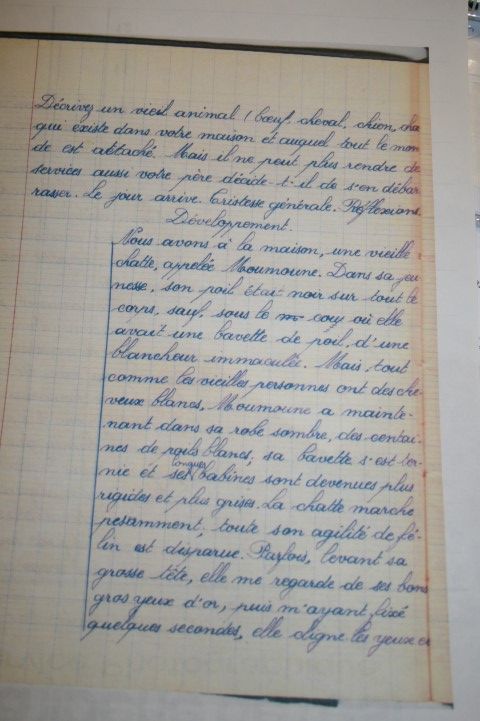 Décrivez un vieil animal (bœuf, cheval, chien, cha
qui existe dans votre maison et auquel tout le mon
de est attaché. Mais il ne peut plus rendre de
services aussi votre père décide-t-il de s'en débar
rasser. Le jour arrive. Tristesse générale. Réflexions.
Développement.
Nous avons à la maison, une vieille
chatte, appelée Moumoune. Dans sa jeu
nesse, son poil était noir sur tout le
corps, sauf, sous le cou où elle
avait une bavette de poil, d'une
blancheur immaculée. Mais tout
comme les vieilles personnes ont des che-
veux blancs, Moumoune a mainte-
nant dans sa robe sombre, des centai-
nes de poils blancs, sa bavette s'est ter-
nie et ses longues babines sont devenues plus
rigides et plus grises. La chatte marche
pesamment, toute son agilité de fé-
lin est disparue. Parfois, levant sa
grosse tête, elle me regarde de ses bons
gros yeux d'or, puis m'ayant fixé
quelques secondes, elle cligne les yeux e